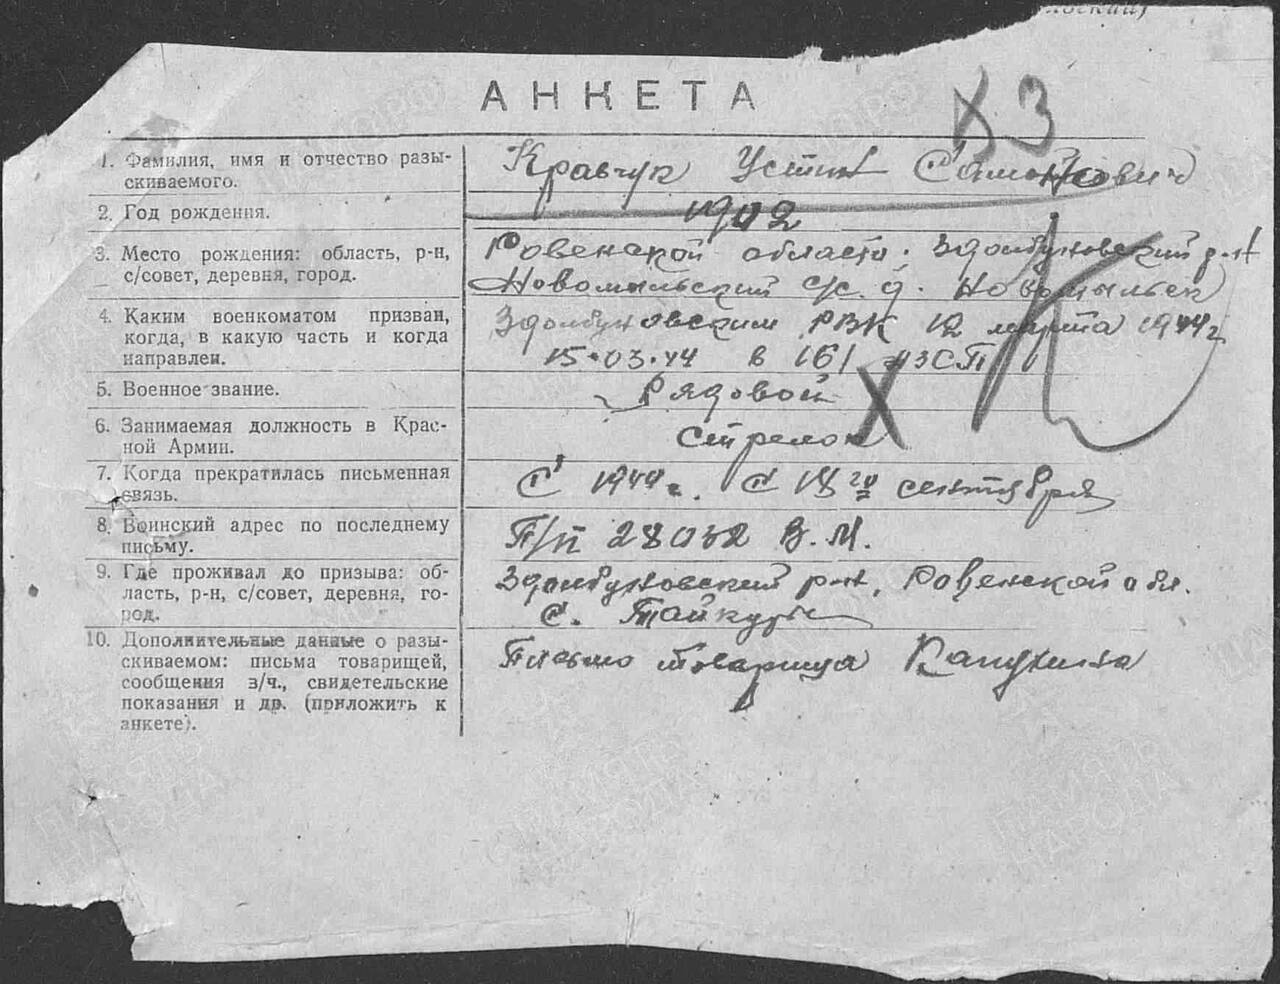 АНКЕТА
КЗ
1. Фамилия, имя и отчество разы-
скиваемого.
Кравчук Устин Самонович
2. Год рождения.
1902
3. Место рождения: область, р-н,
с/совет, деревня, город.
Ровенской области. Здолбуновский р-н
Новомыльский с/с. д. Новомыльск
4. Каким военкоматом призван,
когда, в какую часть и когда
направлен.
Здолбуновским РВК 12 марта 1944 г.
15.03.44 в 161 АЗСП
5. Военное звание.
Рядовой
6. Занимаемая должность в Крас-
ной Армии.
стрелок
7. Когда прекратилась письменная
связь.
С 1944 г. С 18го сентября
8. Воинский адрес по последнему
письму.
П/п 28032 В.М.
9. Где проживал до призыва: об-
ласть, р-н, с/совет, деревня, го-
род.
Здолбуновский р-н, Ровенской обл.
с. Тайкуры
10. Дополнительные данные о разы-
скиваемом: письма товарищей,
сообщения з/ч., свидетельские
показания и др. (приложить к
анкете).
Письмо товарища
ПАМЯТЬ
НАРОДА